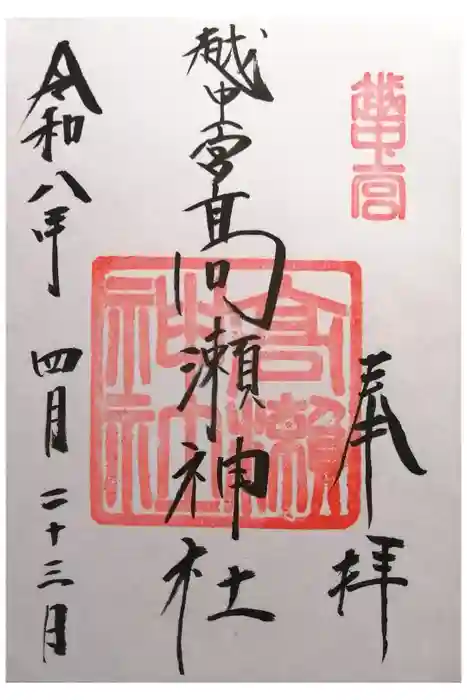 越中一宮
奉拝
越中一宮髙瀬神社
高瀬
神社
令和八年 四月二十三日